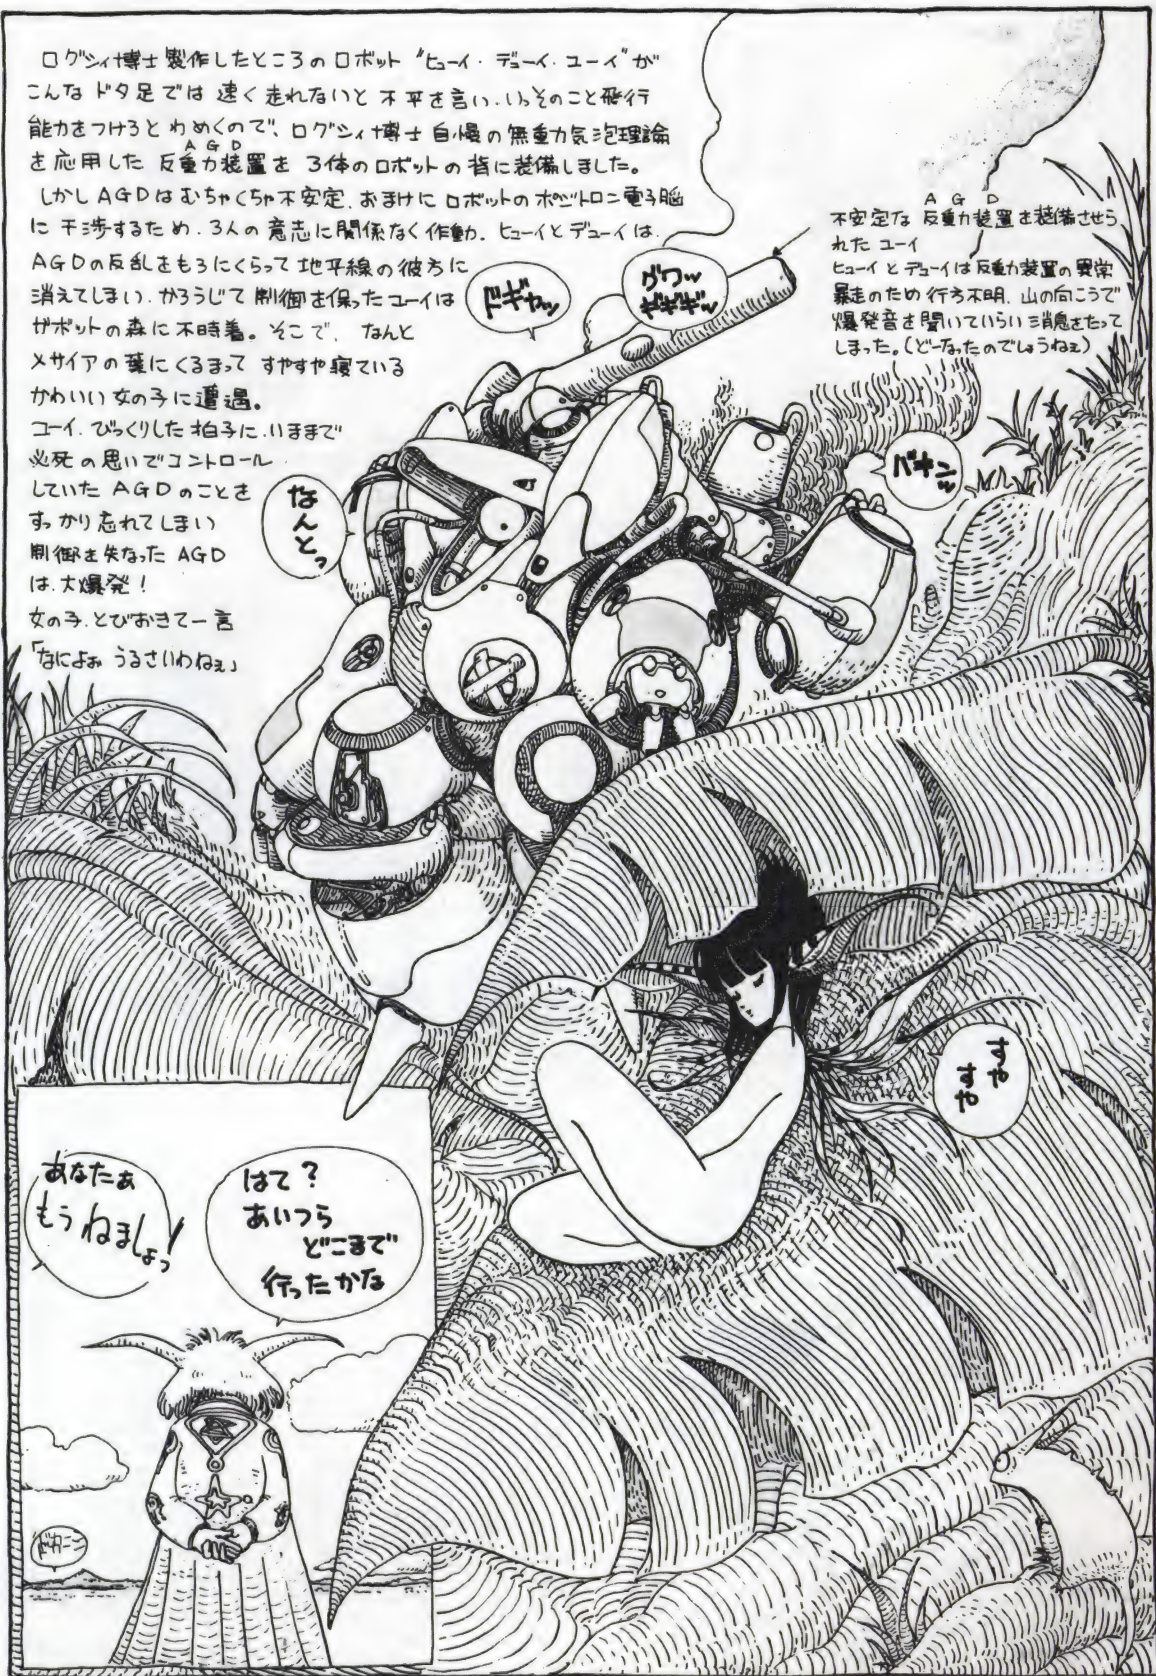 ログシィ博士製作したところのロボット“ヒューイ・デューイ・ユーイ”が
こんなドタ足では速く走れないと不平を言い、いっそのこと飛行
能力をつけろとわめくので、ログシィ博士自慢の無重力気泡理論
AGD
を応用した反重力装置を3体のロボットの背に装備しました。
しかしAGDはむちゃくちゃ不安定、おまけにロボットのポジトロン電子脳
に干渉するため、3人の意志に関係なく作動、ヒューイとデューイは
AGDの反乱をもろにくらって地平線の彼方に
消えてしまい、かろうじて制御を保ったユーイは
ザボットの森に不時着。そこで、なんと
メサイアの葉にくるまってすやすや寝ている
かわいい女の子に遭遇。
ユーイ、びっくりした拍子に、いままで
必死の思いでコントロール
していたAGDのことを
すっかり忘れてしまい
制御を失なったAGD
は、大爆発!
女の子、とびおきて一言
「なによぉうるさいわねぇ」
AGD
不安定な反重力装置を装備させら
れたユーイ
ヒューイとデューイは反重力装置の異常
暴走のため行方不明、山の向こうで
爆発音を聞いていらい消息をたって
しまった。(どーなったのでしょうねぇ)
ドギャッ
グワッ
ギギギッ
バキンッ
なんとっ
すや
すや
はて?
あいつら
どこまで
行ったかな
あなたぁ
もうねましょっ!
ドカーン